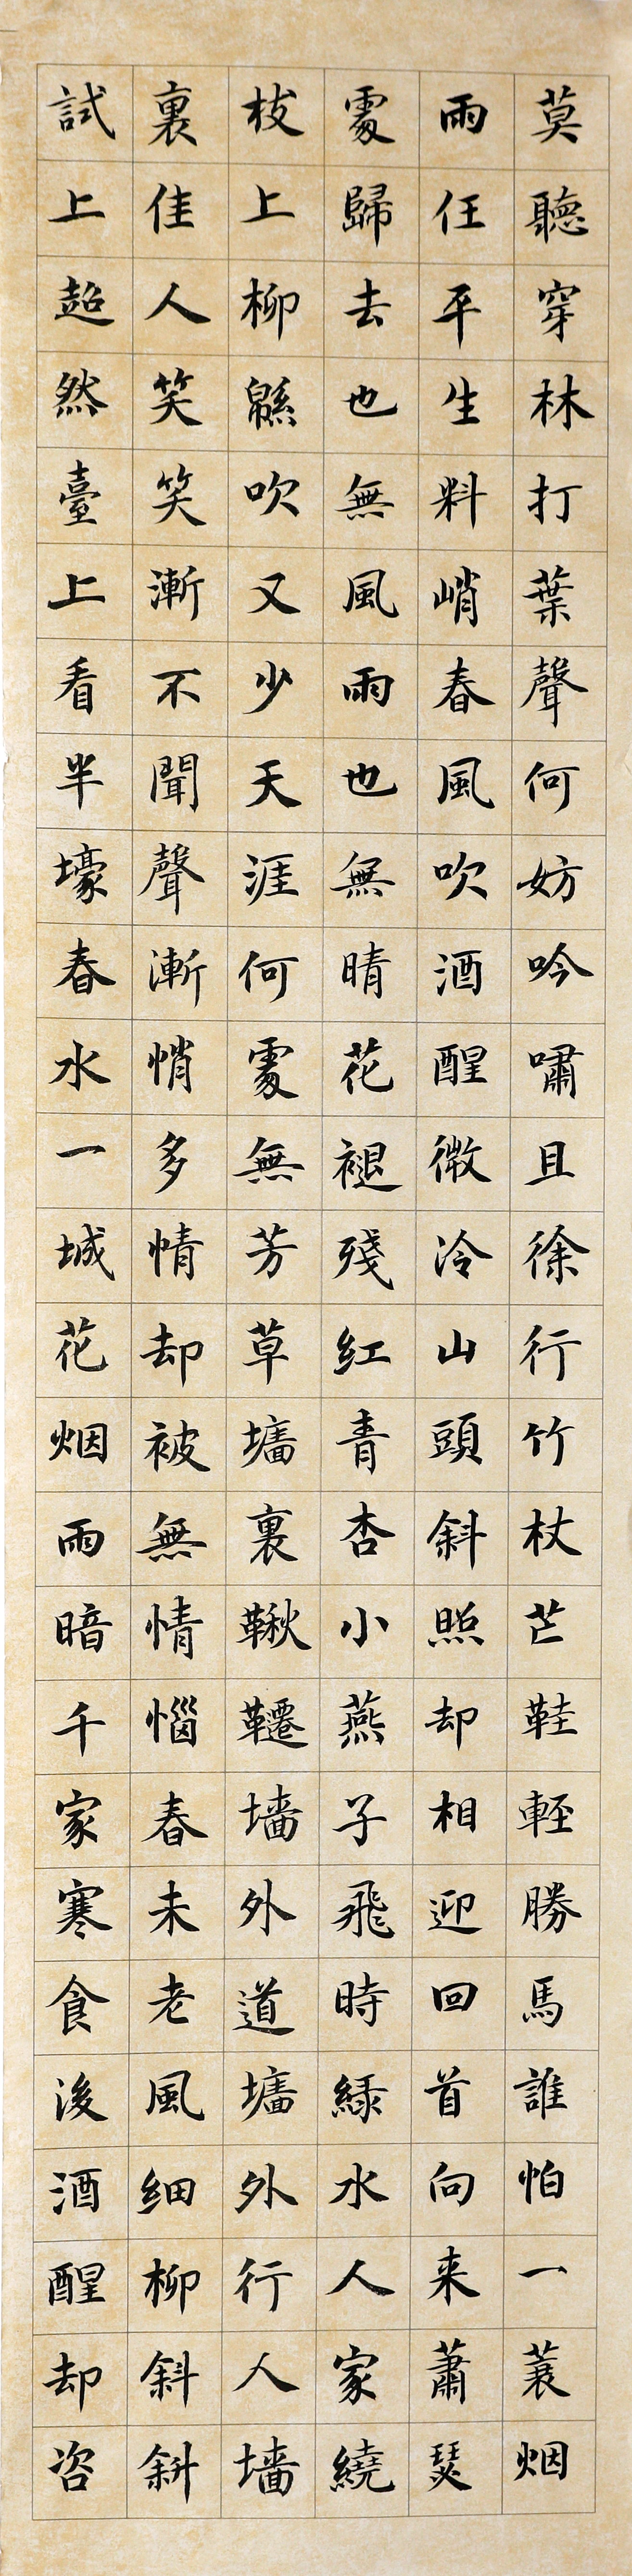 莫聽穿林打葉聲何妨吟嘯且徐行竹杖芒鞋輕勝馬誰怕一蓑烟
雨任平生料峭春風吹酒醒微冷山頭斜照却相迎回首向来蕭瑟
處歸去也無風雨也無晴花褪殘紅青杏小燕子飛時綠水人家繞
枝上柳緜吹又少天涯何處無芳草墻裏鞦韆墻外道墻外行人墻
裏佳人笑笑漸不聞聲漸悄多情却被無情惱春未老風細柳斜斜
試上超然臺上看半壕春水一城花烟雨暗千家寒食後酒醒却咨